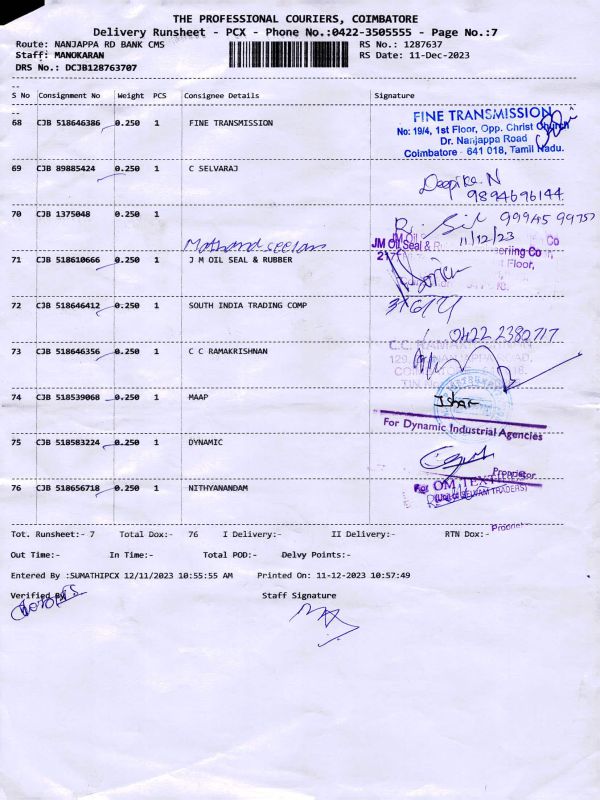 THE PROFESSIONAL COURIERS, COIMBATORE
Delivery Runsheet - PCX - Phone No.:0422-3505555 - Page No.:7
Route: NANJAPPA RD BANK CMS RS No.: 1287637
Staff: MANOKARAN RS Date: 11-Dec-2023
DRS No.: DCJB128763707
S No Consignment No Weight PCS Consignee Details Signature
68 CJB 518646386 0.250 1 FINE TRANSMISSION
FINE TRANSMISSION
No: 19/4, 1st Floor, Opp. Christ Church
Dr. Nanjappa Road
Coimbatore - 641 018, Tamil Nadu.
69 CJB 89885424 0.250 1 C SELVARAJ
Deepika.N
9894696144
70 CJB 1375048 0.250 1
99945 99757
11/12/23
71 CJB 518610666 0.250 1 J M OIL SEAL & RUBBER
JM Oil Seal & Ru
Floor,
72 CJB 518646412 0.250 1 SOUTH INDIA TRADING COMP
0422 2380717
73 CJB 518646356 0.250 1 C C RAMAKRISHNAN
C.C. RAMAKRISHNAN
74 CJB 518539068 0.250 1 MAAP
For Dynamic Industrial Agencies
75 CJB 518583224 0.250 1 DYNAMIC
Proprietor
76 CJB 518656718 0.250 1 NITHYANANDAM
For OM TEXTILES
(Unit of SELVAM TRADERS)
Tot. Runsheet:- 7 Total Dox:- 76 I Delivery:- II Delivery:- RTN Dox:-
Out Time:- In Time:- Total POD:- Delvy Points:-
Entered By :SUMATHIPCX 12/11/2023 10:55:55 AM Printed On: 11-12-2023 10:57:49
Verified By Staff Signature